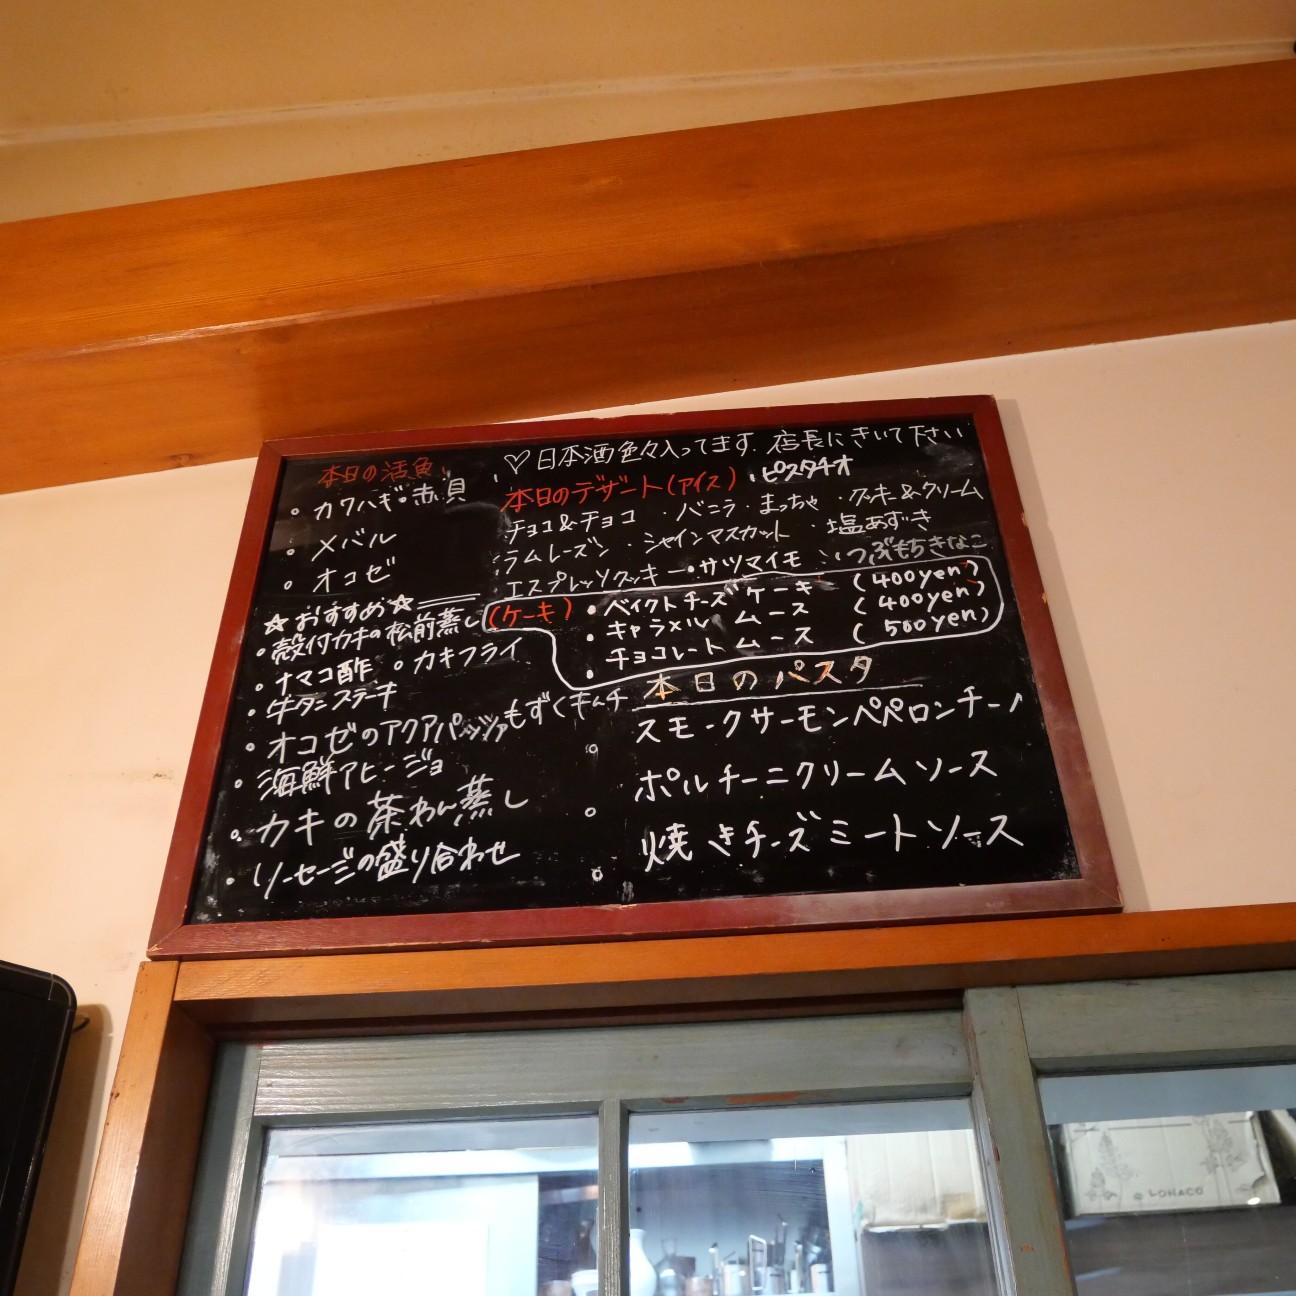 本日の活魚
・カワハギ・赤貝
・メバル
・オコゼ
☆おすすめ☆
・殻付カキの松前蒸し
・ナマコ酢 ・カキフライ
・牛タンステーキ
・オコゼのアクアパッツァ もずくキムチ
・海鮮アヒージョ
・カキの茶わん蒸し
・ソーセージの盛り合わせ
♡日本酒色々入ってます. 店長にきいて下さい
本日のデザート(アイス) ・ピスタチオ
チョコ&チョコ ・バニラ・まっちゃ ・クッキー&クリーム
ラムレーズン ・シャインマスカット ・塩あずき
エスプレッソクッキー・サツマイモ ・つぶもちきなこ
(ケーキ) ・ベイクトチーズケーキ (400yen)
・キャラメル ムース (400yen)
・チョコレートムース (500yen)
本日のパスタ
スモークサーモンペペロンチーノ
ポルチーニクリームソース
焼きチーズミートソース
LOHACO